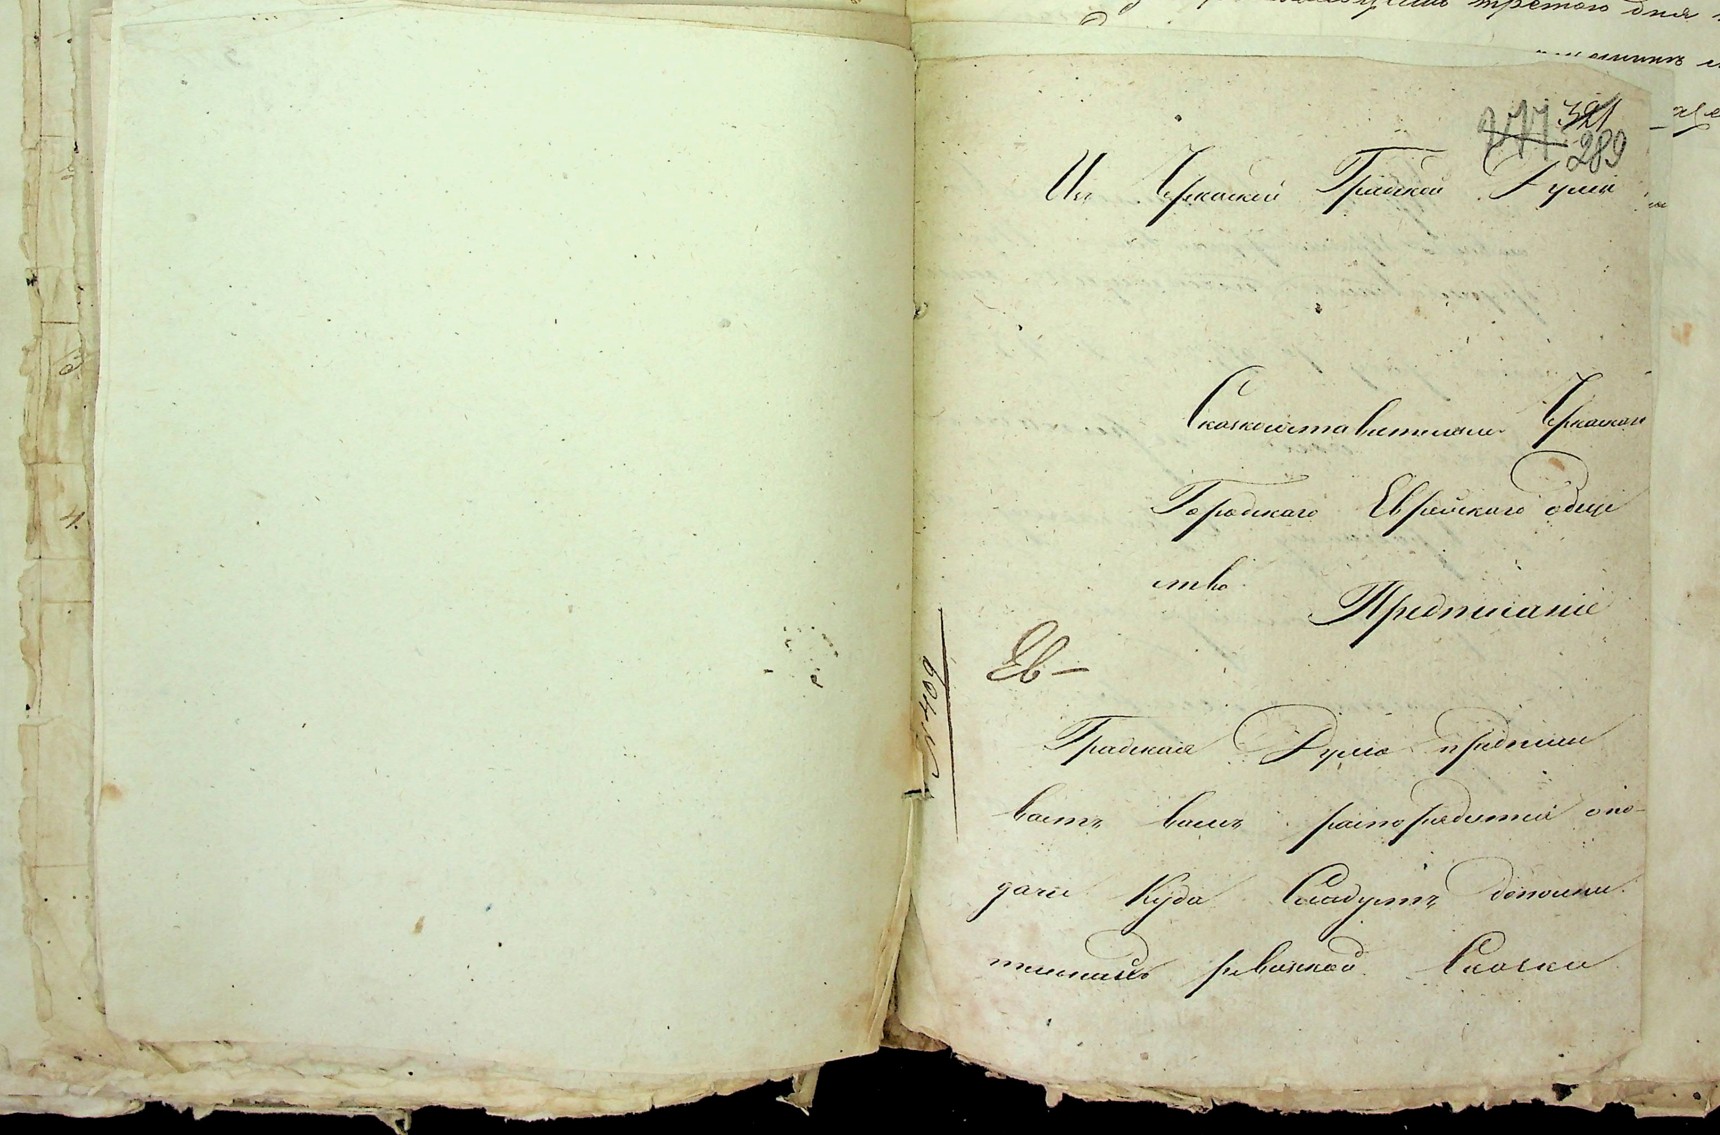 третого дня
321
289
Из Черкаской Градской Думы
Сказкосставителям Черкаскаго
Городскаго Еврейскаго обще
ства
Предписание
Ев—
№ 409
Градская Дума предписы
ваетъ вамъ распорядится опо-
дачи Куда Следуетъ дополни
тельнаго ревизкой Сказки
4.